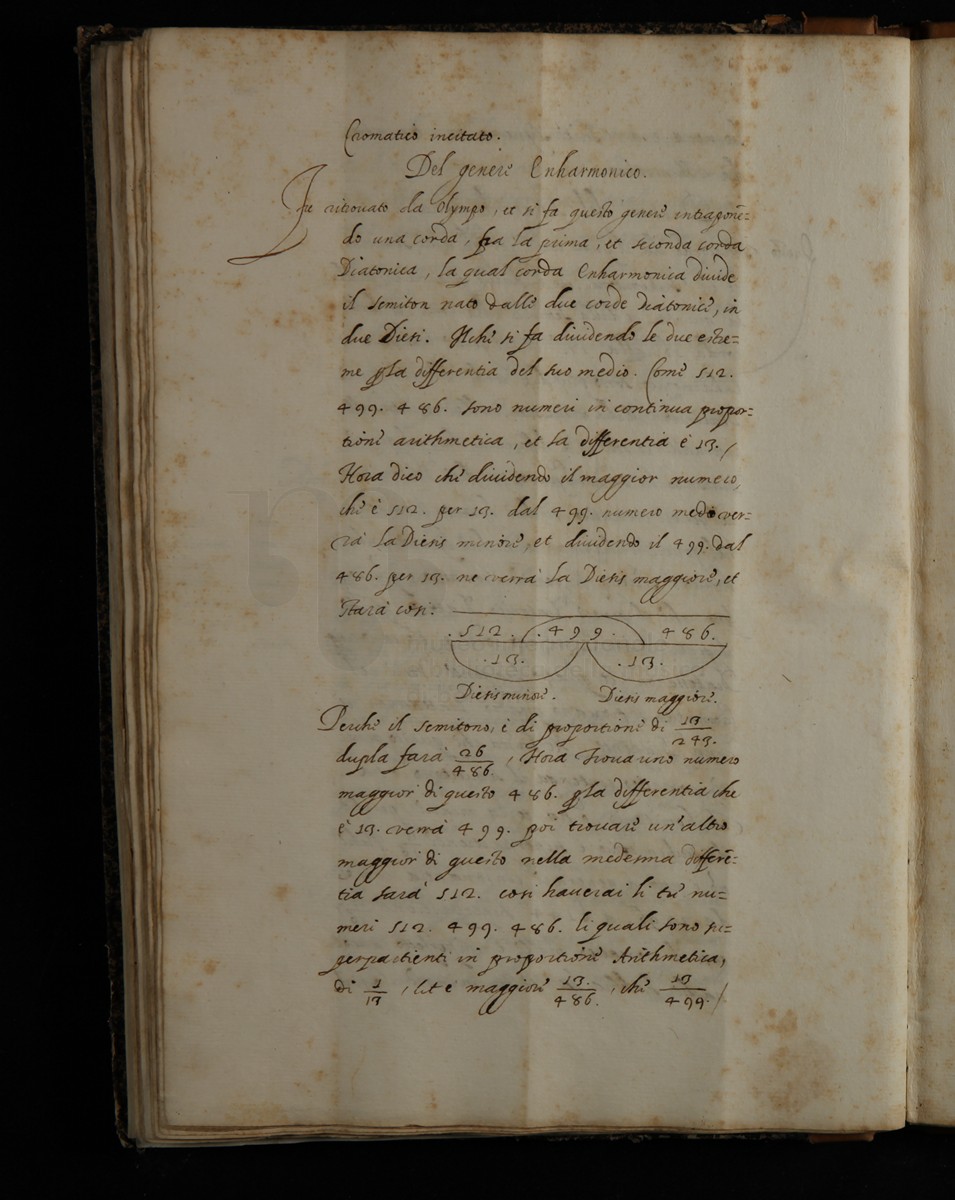 Cromatico incitato.
Del genere Enharmonico.
Fu ritrouato da Olympo, et si fa questo genere intraponē=
do una corda, fra la prima, et seconda corda
Diatonica, la qual corda Enharmonica diuide
il semiton nato dalle due corde diatonice, in
due Diesi. Il che si fa diuidendo le due estre=
me p la differentia del suo medio. Come 512.
499. 486. sono numeri in continua propor=
tione arithmetica, et la differentia è 13. /
Hora dico che diuidendo il maggior numero,
che è 512. per 13. dal 499. numero medio ver=
rà la Diesis minore, et diuidendo il 499. dal
486. per 13. ne verrà la Diesis maggiore, et
starà cosi.
.512. .499. 486.
.13. .13.
Diesis minore. Diesis maggiore.
Perche il semitono, è di proportione di 13/243.
dupla farà 26/486. , Hora troua uno numero
maggior di questo 486. p la differentia che
è 13. verrà 499. poi trouare un'altro
maggior di questo nella medesma differē=
tia sarà 512. cosi hauerai li tre nu=
meri 512. 499. 486. li quali sono su=
perpartienti in proportione Arithmetica,
di 1/13 , et è maggiore 13./486. , che 13/499. /